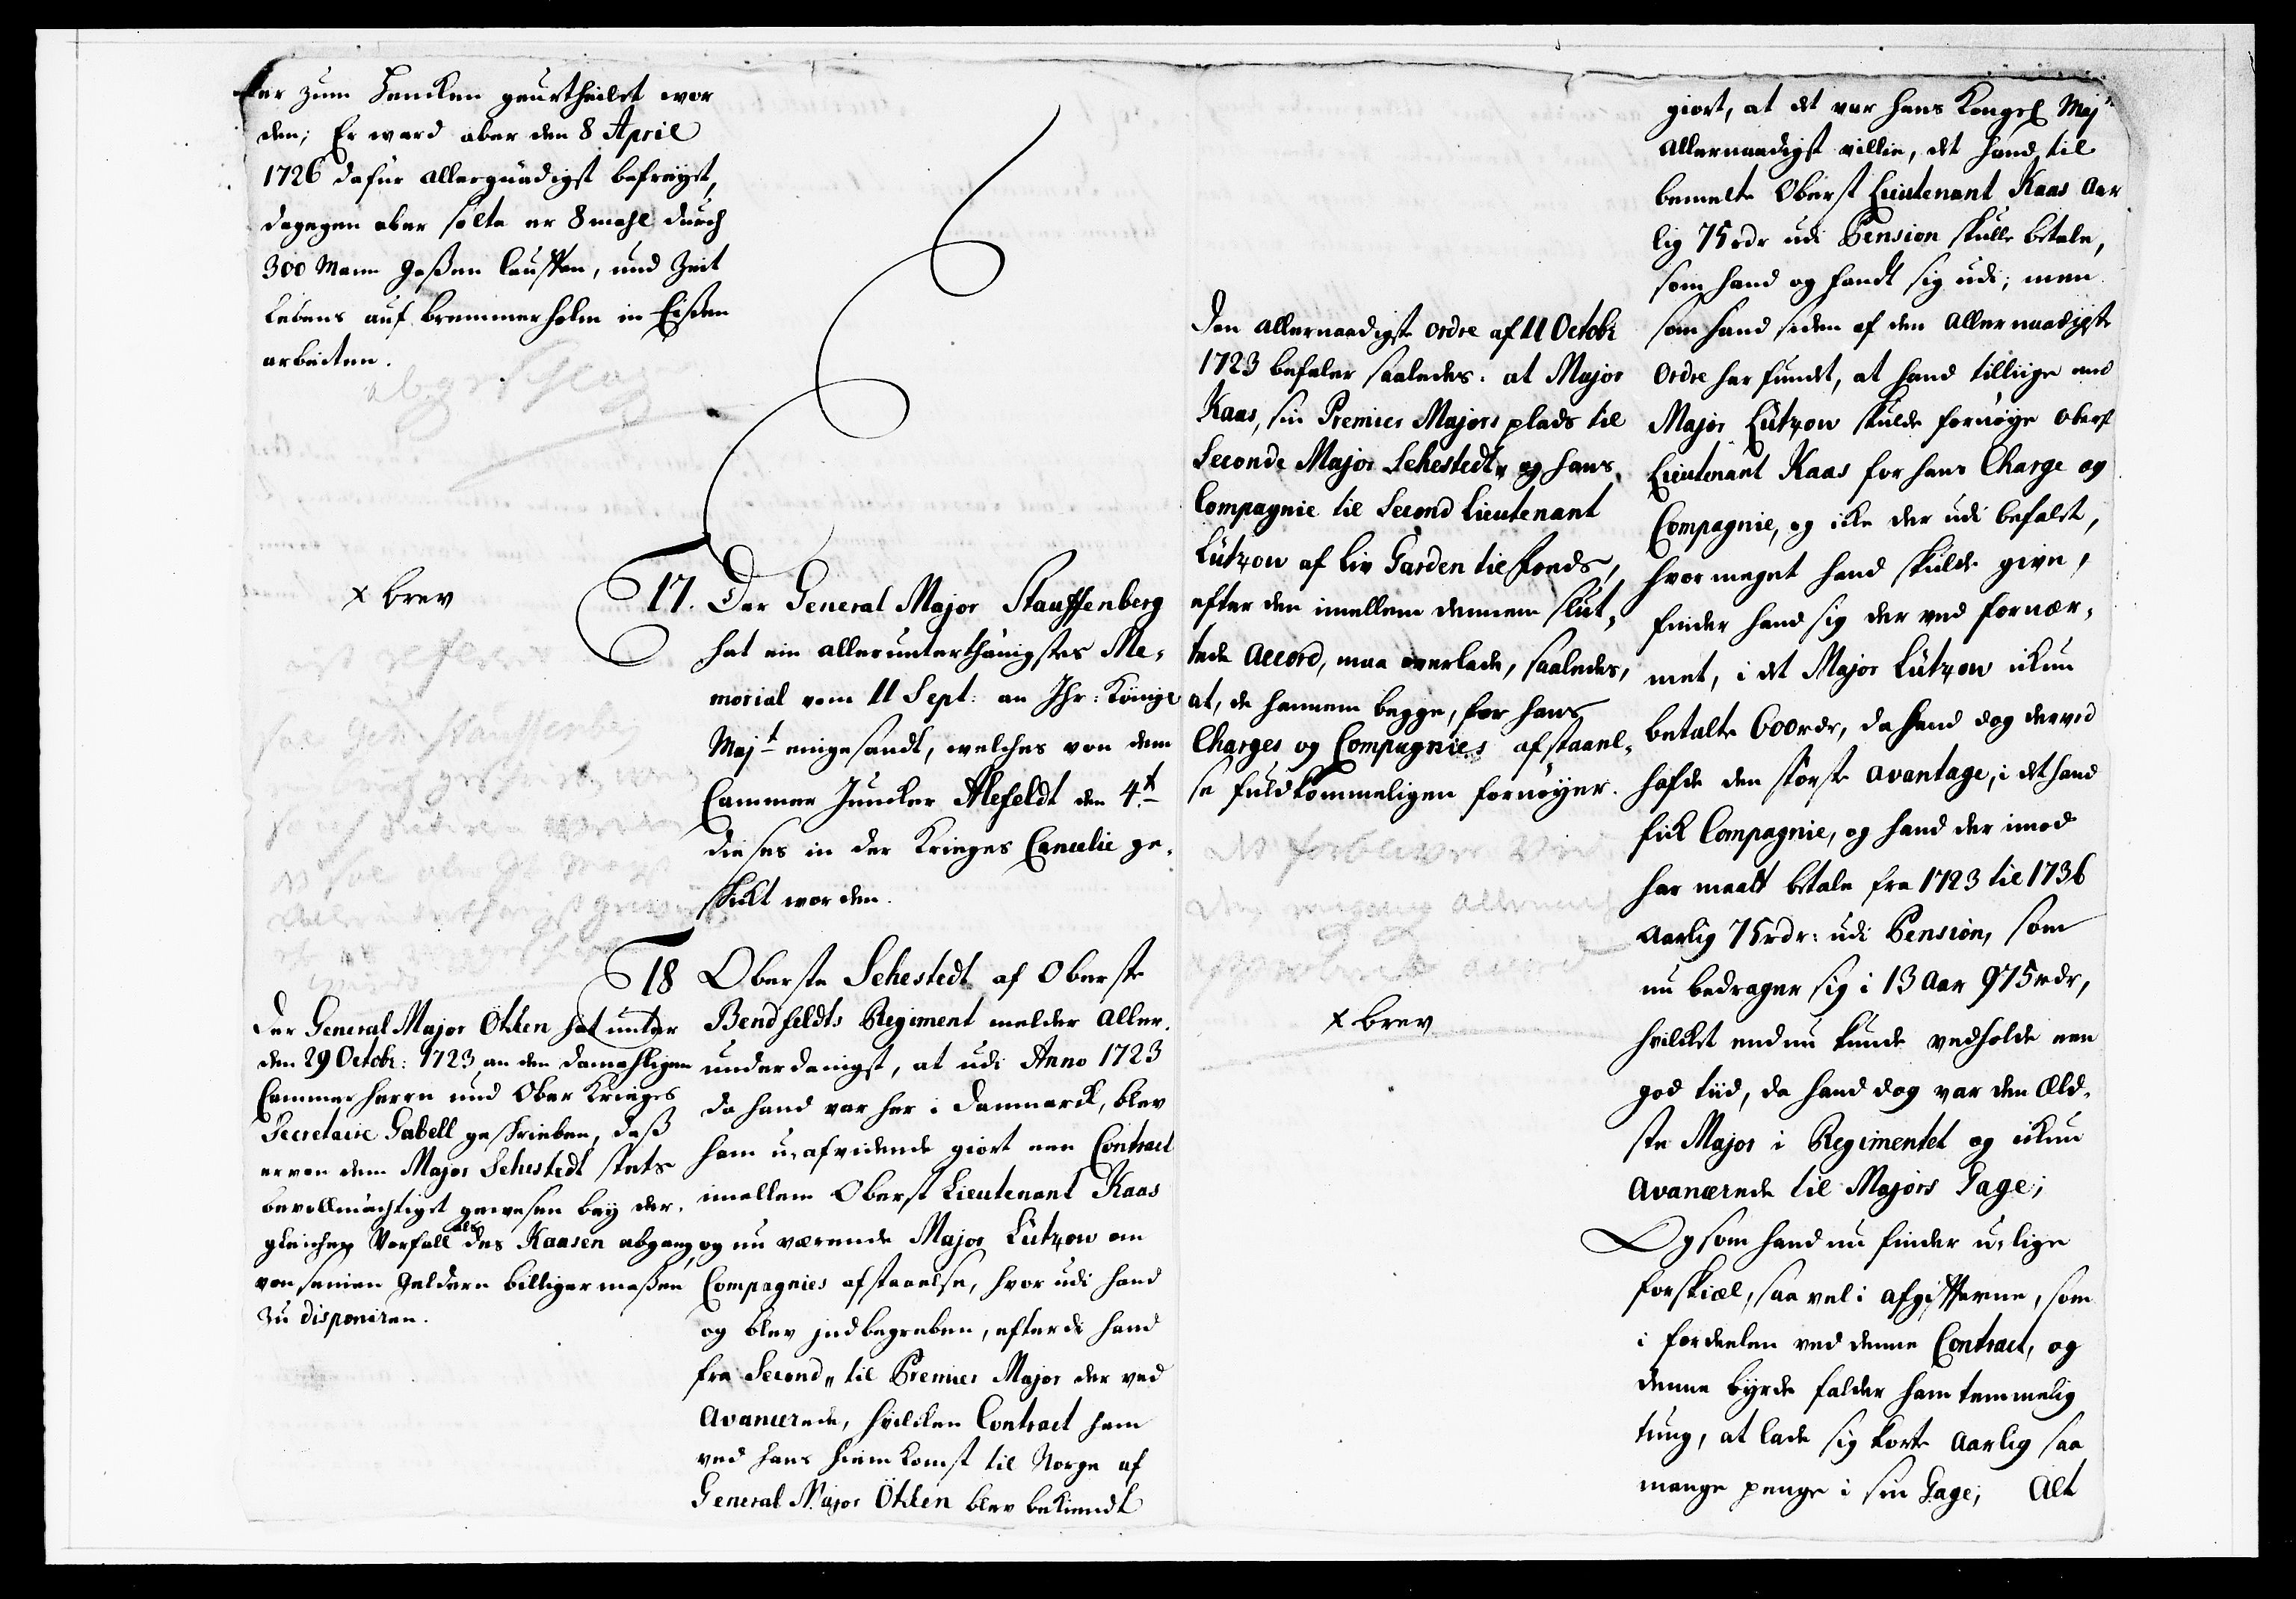 ker zum Hencken geurtheilet wor
den; Er ward aber den 8 April
1726 dafür allergnädigst befreyet,
dagegen aber solte er 8 mahl durch
300 Mann Gaßen lauffen, und Zeit
Lebens auf Bremmerholm in Eißen
arbeiten.
abgeschlag
x brev
17. Der General Major Stauffenberg
hat ein allerunterthänigstes Me,
morial vom 11 Sept: an Ihr: Königl
Majt eingesandt, welches von dem
Cammer Juncker Alefeldt den 4t
dieses in der Krieges Cancelie ge,
schickt worden.
Der General Major Ötken hat unter
den 29 Octobr: 1723 an den damahligen
Cammerherrn und Ober Krieges
Secretaire Gabell geschrieben, daß
er von dem Major Sehestedt stets
bevollmächtiget gewesen bey der,
gleichen Vorfall als des Kaasen abgang,
von seinen Geldern billiger maßen
zu disponiren.
18 Oberste Sehestedt af Oberste
Bendfeldts Regiment melder Aller,
underdanigst, at udi Anno 1723
da hand var her i Danmarck, blev
ham u-afvidende giort een Contract
imellem Oberst Lieutenant Kaas
og nu værende Major Lützow om
Compagnies afstaaelse, hvor udi hand
og blev indbegreben, efterdi hand
fra Second,, til Premier Major der ved
Avancerede, hvilcken Contract ham
ved hans hiemkomst til Norge af
General Major Ötken blev bekiendt
Den allernaadigste ordre af 11 Octobr
1723 befaler saaledes: at Major
Kaas, sin Premier Majors plads til
Seconde Major Sehestedt, og hans
Compagnie til Second Lieutenant
Lützow af Liv Garden til Fods,
efter den imellem dennem slut,
tede Accord, maa overlade, saaledes,
at, de hannem begge, for hans
Charges og Compagnies afstaael,
se fuldkommeligen fornøyer.
det forbliver ved
den engang allernaad
accord
x brev
giort, at det var hans Kongel Majts
Allernaadigst villie, det hand til
bemelte Oberst Lieutenant Kaas Aar
lig 75 rdr udi Pension skulle betale,
som hand og fandt sig udi; men
som hand siden af den Allernaadigste
Ordre har fundet, at hand tilliige med
Major Lützow skulde fornøye Oberst
Lieutenant Kaas for hans Charge og
Compagnie, og icke der udi befalet,
hvor meget hand skulde give,
finder hand sig der ved fornær,
met, i det Major Lützow ickun
betalte 600 rdr, da hand dog derved
hafde den største avantage, i det hand
fick Compagnie, og hand der imod
har maatt betale fra 1723 til 1736
Aarlig 75 rdr: udi Pension, som
nu bedrager sig i 13 Aar 975 rdr,
hvilcket endnu kunde vedholde een
god tiid, da hand dog var den Æld,
ste Major i Regimentet og ickun
Avancerede til Majors Gage;
Og som hand nu finder u-lige
forskiæl, saa vel i afgifterne, som
i fordeelen ved denne Contract, og
denne byrde falder ham temmelig
tung, at lade sig korte Aarlig saa
mange penge i sin Gage; Alt